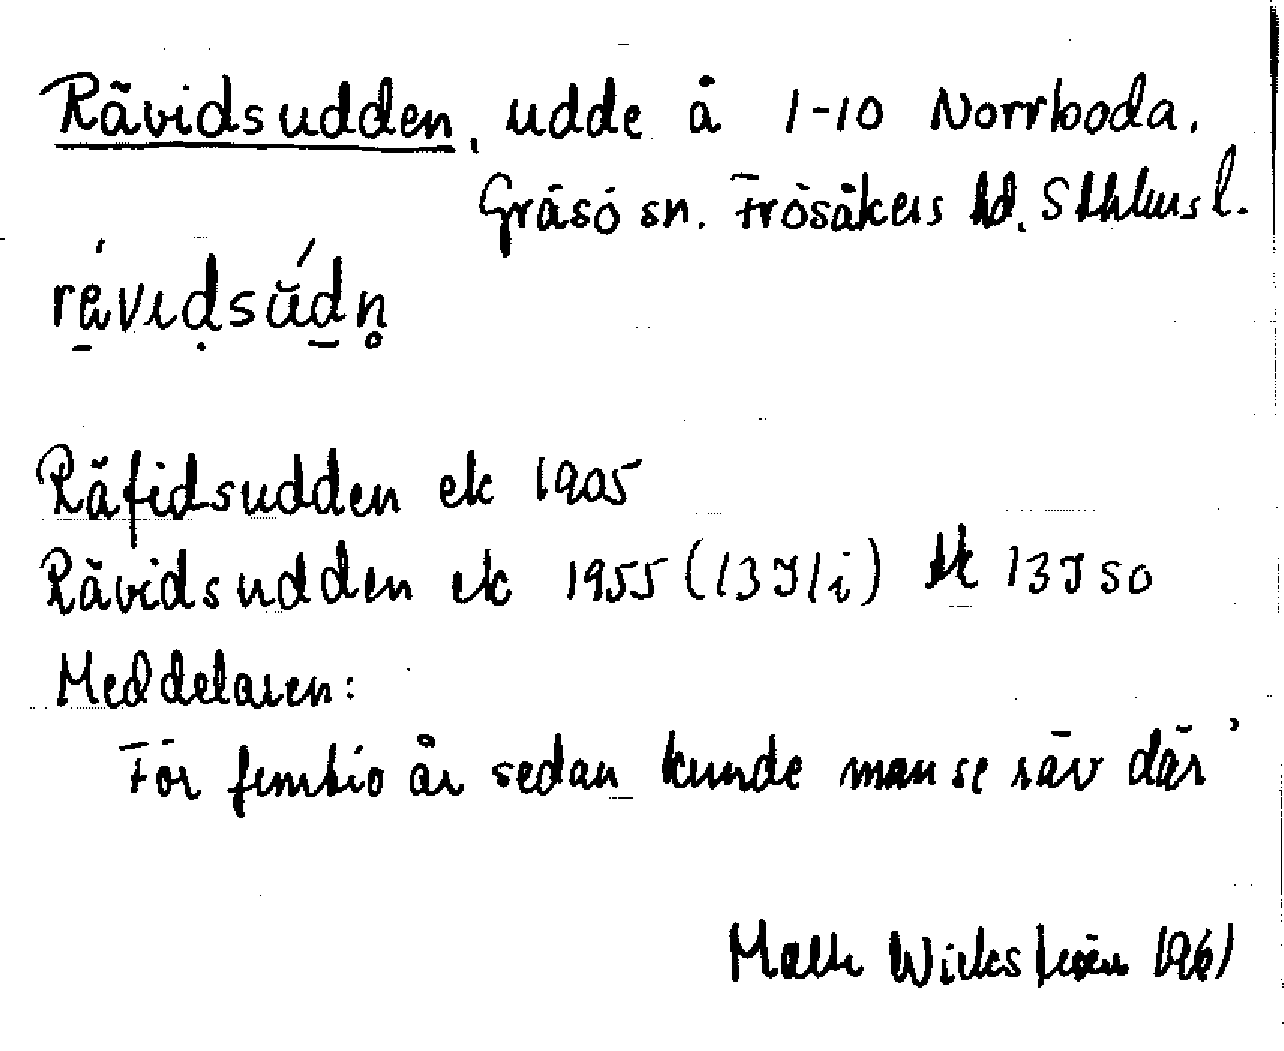 Rävidsudden, udde å 1-10 Norrboda.
Gräsö sn. Frösåkers hd. Sthlms l.
rävidsúdn̥
Räfidsudden ek 1905
Rävidsudden ek 1955 (13J1i) tk 13J SO
Meddelaren:
För femtio år sedan kunde man se räv där'
1961